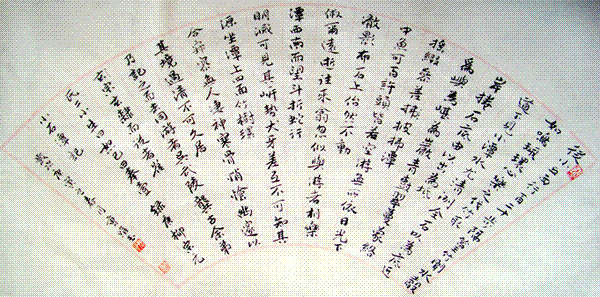 從小丘西行百二十步隔篁竹聞水聲
如鳴珮環心樂之伐竹取
道下見小潭水尤清冽全石以為底近
岸捲石底以出為坻
為嶼為嵁為巖青樹翠蔓蒙絡
搖綴參差披拂潭
中魚可百許頭皆若空游無所依日光下
澈影布石上佁然不動
俶爾遠逝往來翕忽似與游者相樂
潭西南而望斗折蛇行
明滅可見其岸勢犬牙差互不可知其
源坐潭上四面竹樹環
合寂寥無人凄神寒骨悄愴幽邃以
其境過清不可久居
乃記之而去同游者吳武陵龔古余弟
宗玄隸而從者崔
氏二小生曰恕己曰奉壹錄唐柳宗元
小石潭記歲次庚